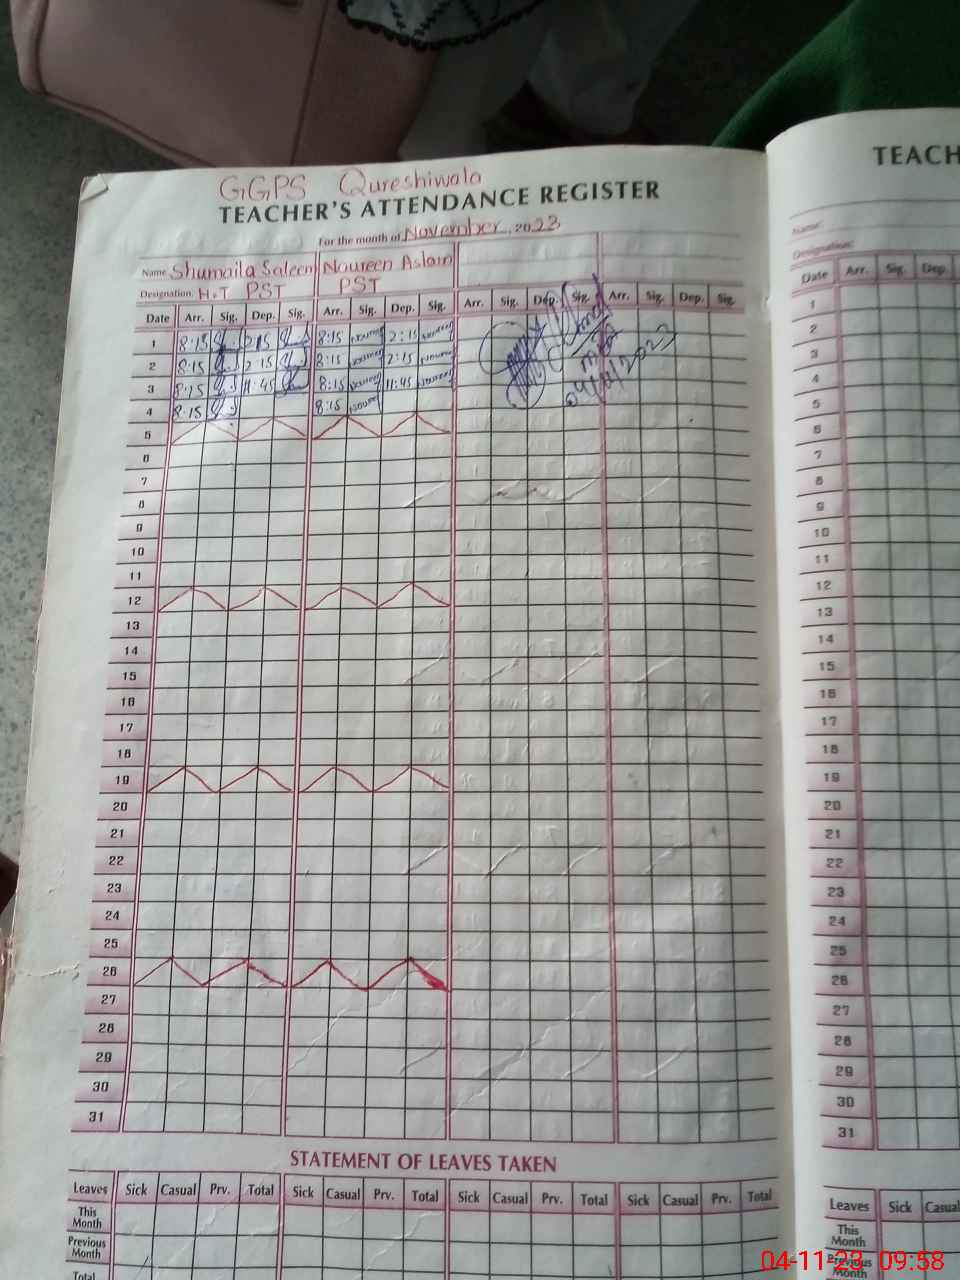 GGPS Qureshiwala
TEACHER'S ATTENDANCE REGISTER
For the month of November, 2023
Name Shumaila Saleem Noureen Aslam
Designation: H.T PST PST
Date Arr. Sig. Dep. Sig. Arr. Sig. Dep. Sig. Arr. Sig. Dep. Sig. Arr. Sig. Dep. Sig.
1 8:15 2:15 8:15 Noureen 2:15 Noureen
2 8:15 2:15 8:15 Noureen 2:15 Noureen
3 8:15 11:45 8:15 Noureen 11:45 Noureen
4 8:15 8:15 Noureen
5
6
7
8
9
10
11
12
13
14
15
16
17
18
19
20
21
22
23
24
25
26
27
28
29
30
31
MEA
04/11/2023
STATEMENT OF LEAVES TAKEN
Leaves Sick Casual Prv. Total Sick Casual Prv. Total Sick Casual Prv. Total Sick Casual Prv. Total
This
Month
Previous
Month
Total
TEACH
Name:
Designation:
Date Arr. Sig. Dep.
1
2
3
4
5
6
7
8
9
10
11
12
13
14
15
16
17
18
19
20
21
22
23
24
25
26
27
28
29
30
31
Leaves Sick Casual
This
Month
Previous
Month
04-11-23 09:58